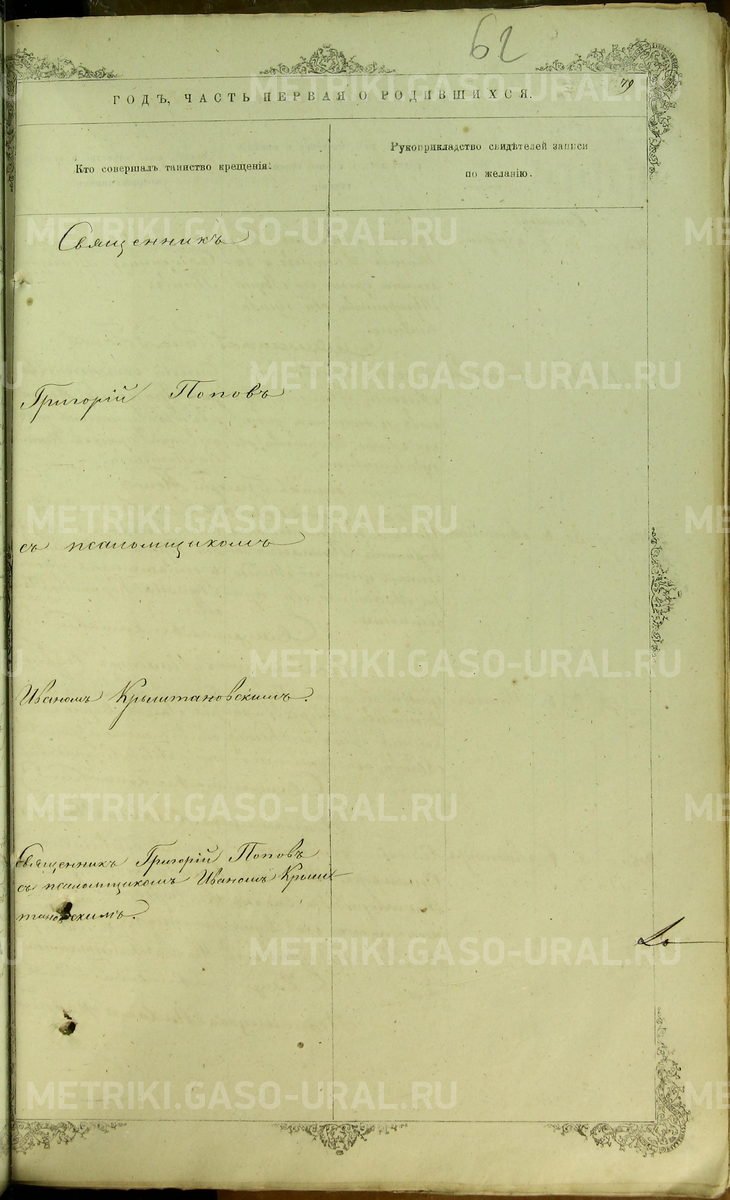 62
79
ГОДЪ, ЧАСТЬ ПЕРВАЯ О РОДИВШИХСЯ.
Кто совершалъ таинство крещенія.
Рукоприкладство свидѣтелей записи
по желанію.
Священникъ
Григорій Поповъ
съ псаломщикомъ
Иваномъ Крыштановскимъ.
Священникъ Григорій Поповъ
съ псаломщикомъ Иваномъ Крыш
тановскимъ.
METRIKI.GASO-URAL.RU